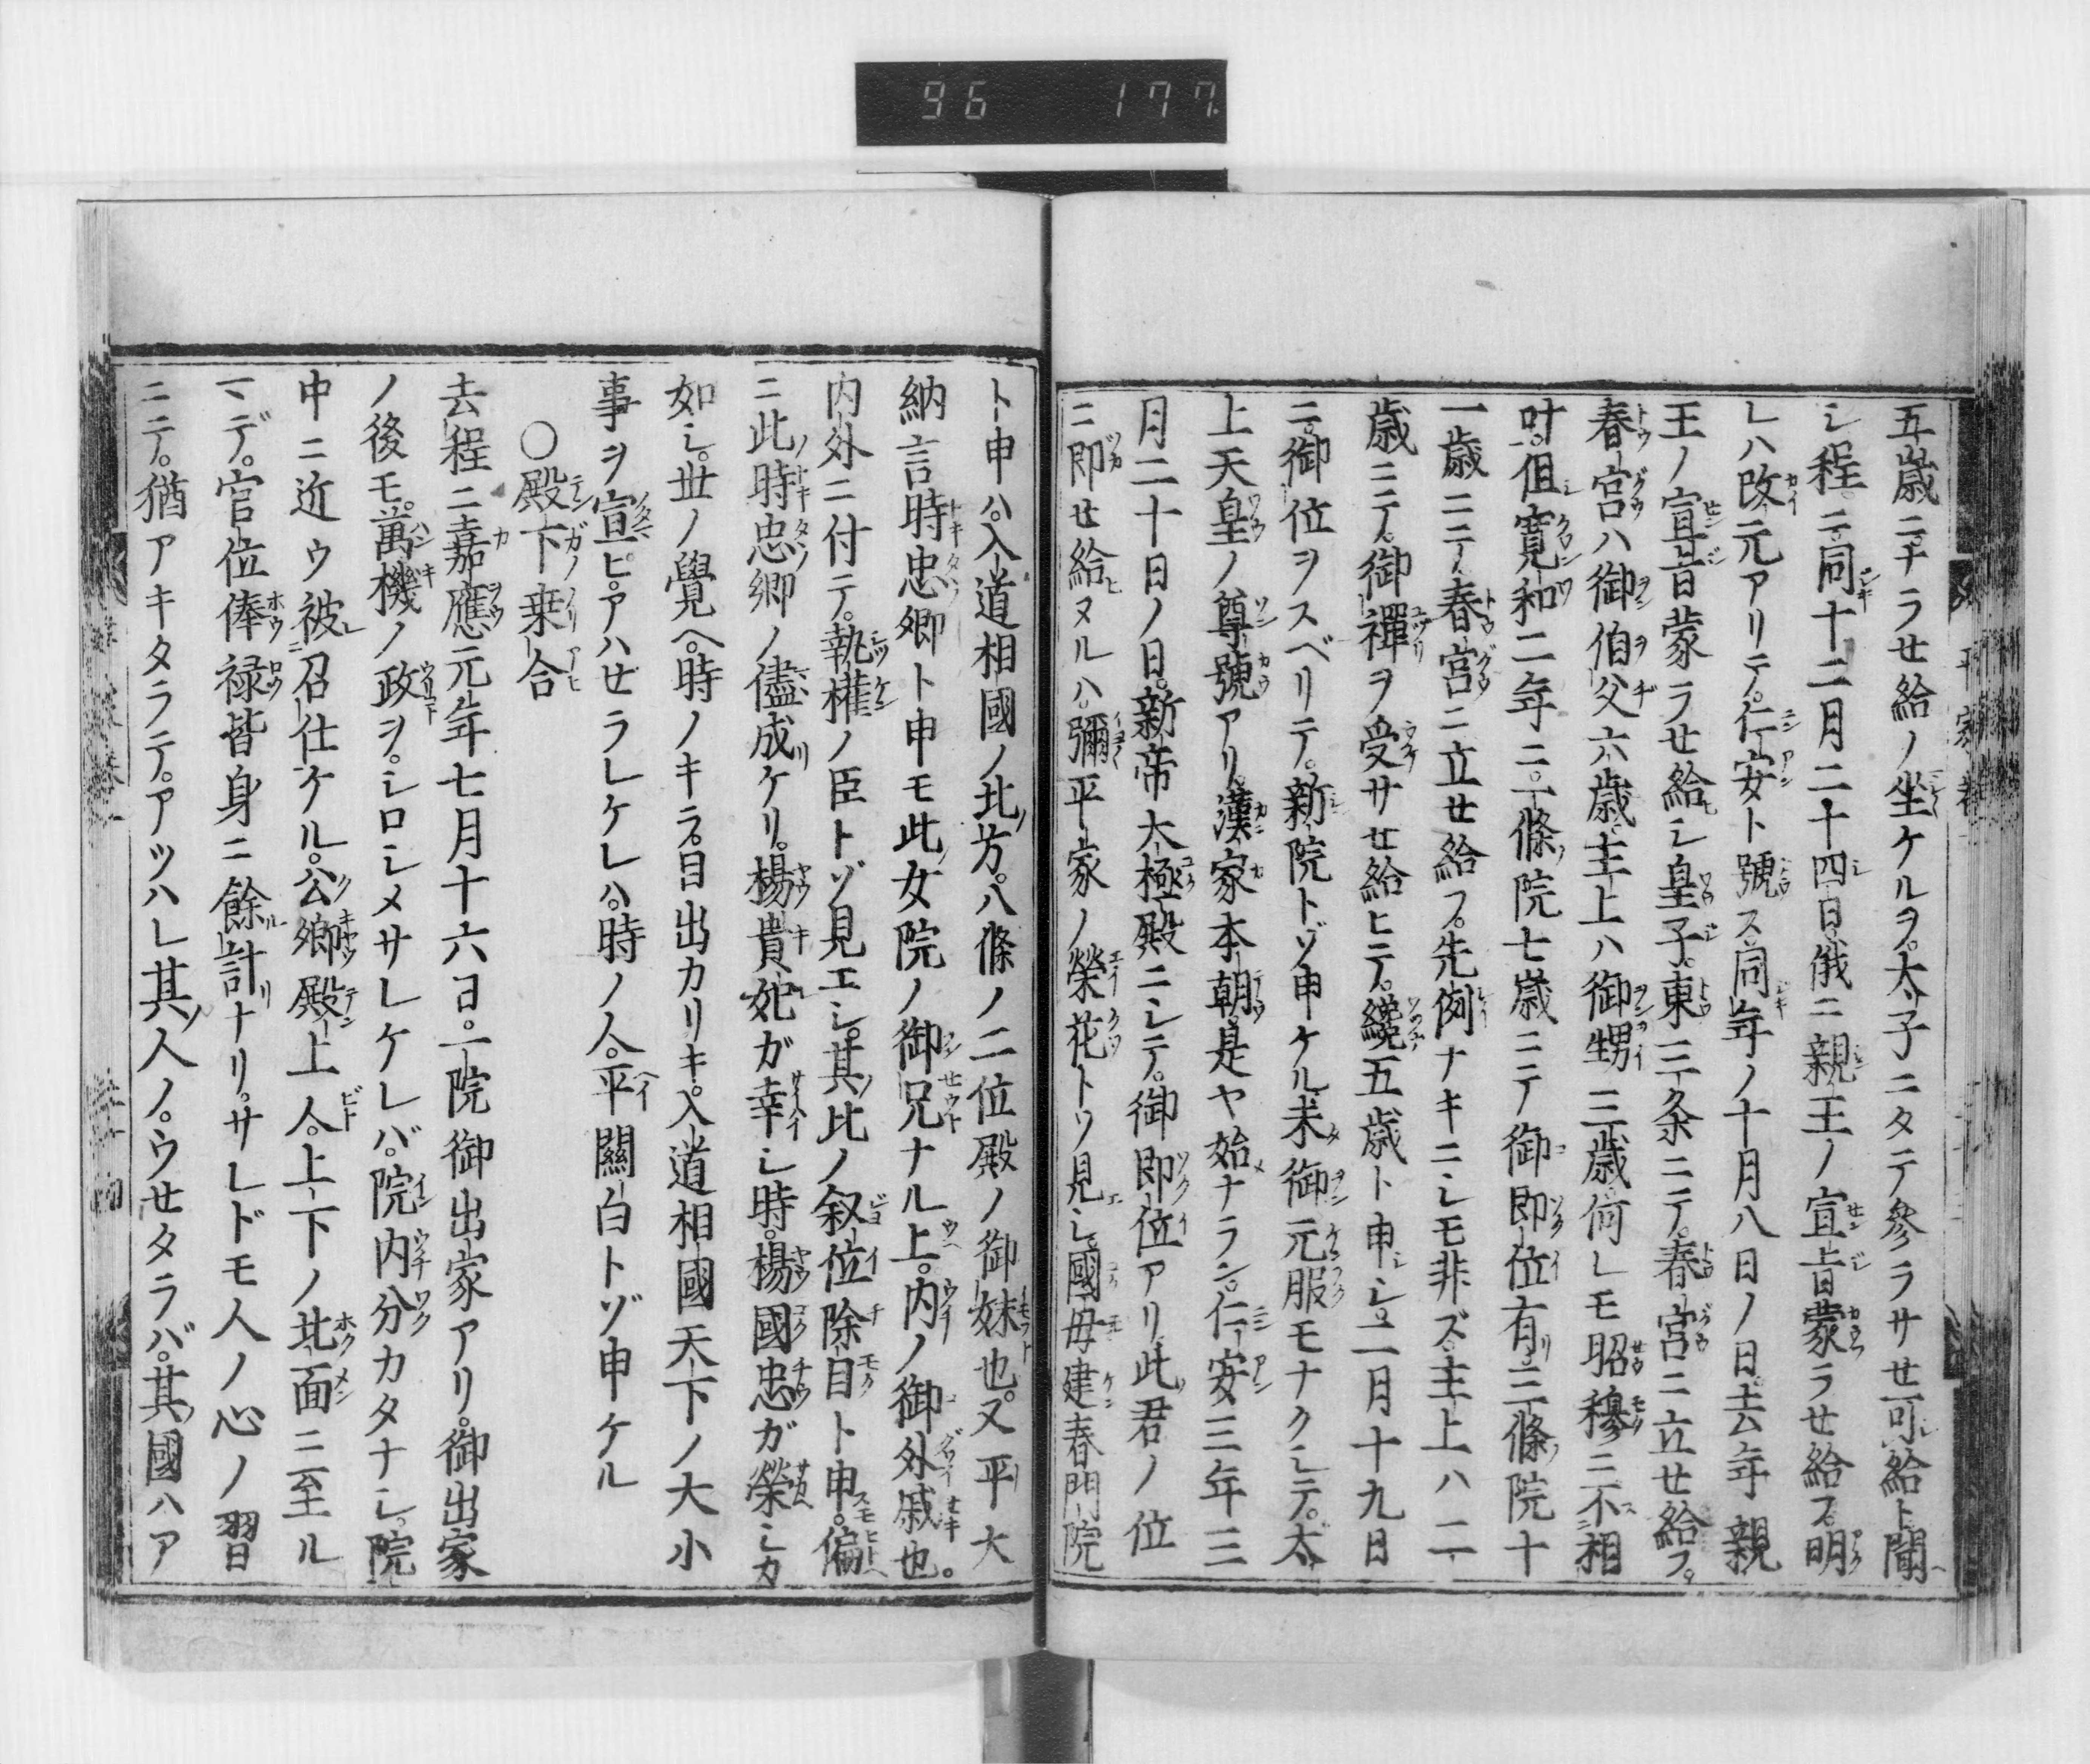 96 177
五歳ニナラせ給ノ坐ケルヲ。太子ニタテ參ラサせ可給ト聞
シ程ニ。同十二月二十四日。俄ニ親王ノ宣旨蒙ラせ給フ。明
レハ改元アリテ。仁安ト號ス。同年ノ十月八日ノ日。去年親
王ノ宣旨蒙ラせ給ヒシ皇子。東三条ニテ。春宮ニ立せ給フ。
春宮ハ御伯父六歳。主上ハ御甥三歳。何レモ昭穆ニ不相
叶。但寛和二年ニ。一條院七歳ニテ御即位有リ。三條院十
一歳ニテ。春宮ニ立せ給フ。先例ナキニシモ非ズ。主上ハ二
歳ニテ。御禪ヲ受サせ給ヒテ。纔五歳ト申シ。二月十九日
ニ。御位ヲスベリテ。新院トゾ申ケル。未御元服モナクシテ。太
上天皇ノ尊號アリ。漢家本朝。是ヤ始ナラン。仁安三年三
月二十日ノ日。新帝大極殿ニシテ。御即位アリ。此君ノ位
ニ即せ給ヒヌルハ。彌平家ノ榮花トソ見エシ。國母建春門院
ト申ハ。入道相國ノ北方。八條ノ二位殿ノ御妹也。又平大
納言時忠卿ト申モ此女院ノ御兄ナル上。内ノ御外戚也。
内外ニ付テ。執權ノ臣トゾ見エシ。其比ノ叙位除目ト申。偏
ニ此時忠卿ノ儘成リケリ。楊貴妃ガ幸シ時。楊國忠ガ榮シカ
如シ。世ノ覺ヘ。時ノキラ。目出カリキ。入道相國天下ノ大小
事ヲ宣ヒアハせラレケレハ。時ノ人。平關白トゾ申ケル
〇殿下乗合
去程ニ嘉應元年七月十六日。一院御出家アリ。御出家
ノ後モ。萬機ノ政ヲ。シロシメサレケレバ。院内分カタナシ。院
中ニ近ウ被召仕ケル。公卿殿上人。上下ノ北面ニ至ル
マデ。官位俸禄皆身ニ餘計ナリ。サレドモ人ノ心ノ習
ニテ。猶アキタラテ。アツハレ其人ノ。ウせタラバ。其國ハア